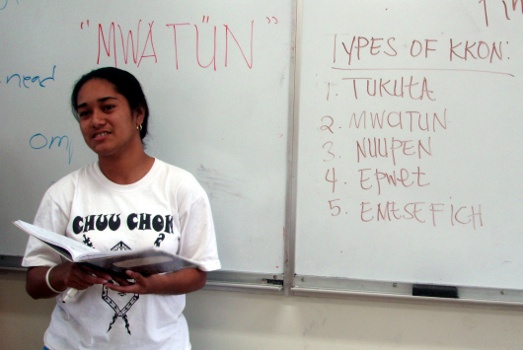 "MWATÜN"
need
TYPES OF KKON:
1. TUKUTA
2. MWATUN
3. NUUPEN
4. Epwet
5. EMESEFICH
CHUU CHOK